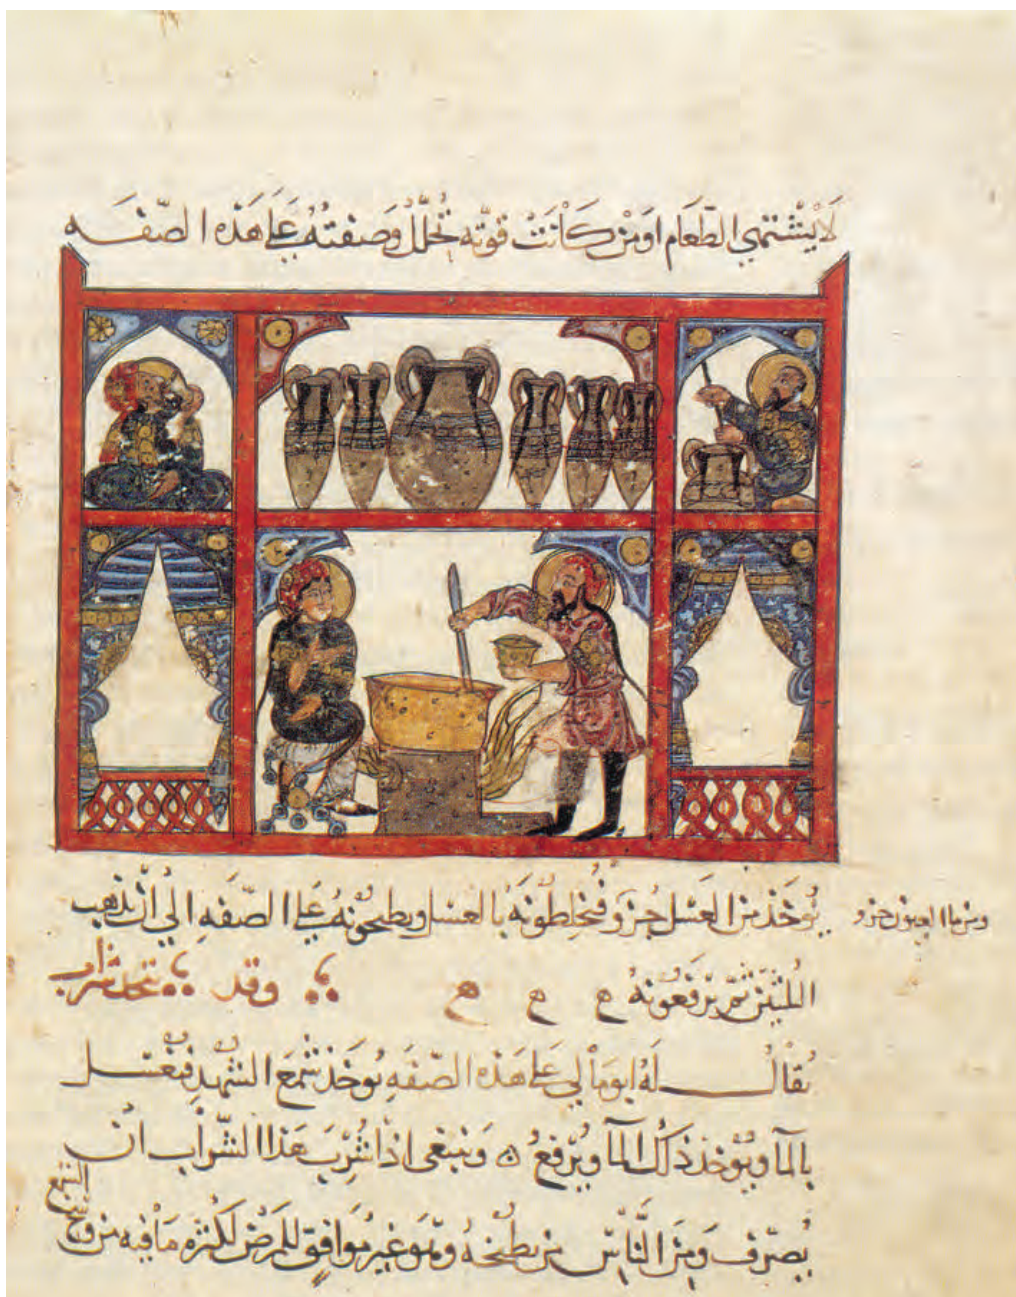 لَا يَشْتهي الطَّعَام اومَن كَانَت قوّته تحَلّل وَصفتُهُ عَلَى هَذِهِ الصّفَه
يُوخَذ مِن العَسَل جُزو فيخلِطُونَهُ بالعسَل ويطبخُونَهُ عَلى الصّفَهِ الي ان يذهب
ومن ما العيون جزو
الثلثين ثُمّ يرفَعُونهُ ه ه ه وقد يتخذ شراب
يُقالُ لَهُ ابومَالي عَلى هَذه الصّفَه يُوخَذ شمَع الشهدِ فيُغسَل
بالمآ ويُوخذ ذَلك المآ ويُرفعُ ٥ وَينبغى اذا شُرِبَ هَذا الشّراب ان
يُصَرّف وَمِنَ النَّاسِ من يطبخهُ وهُوَ غير مُوَافِق للمرَضى لكثرَه مَا فيه من وسَخ
الشمع